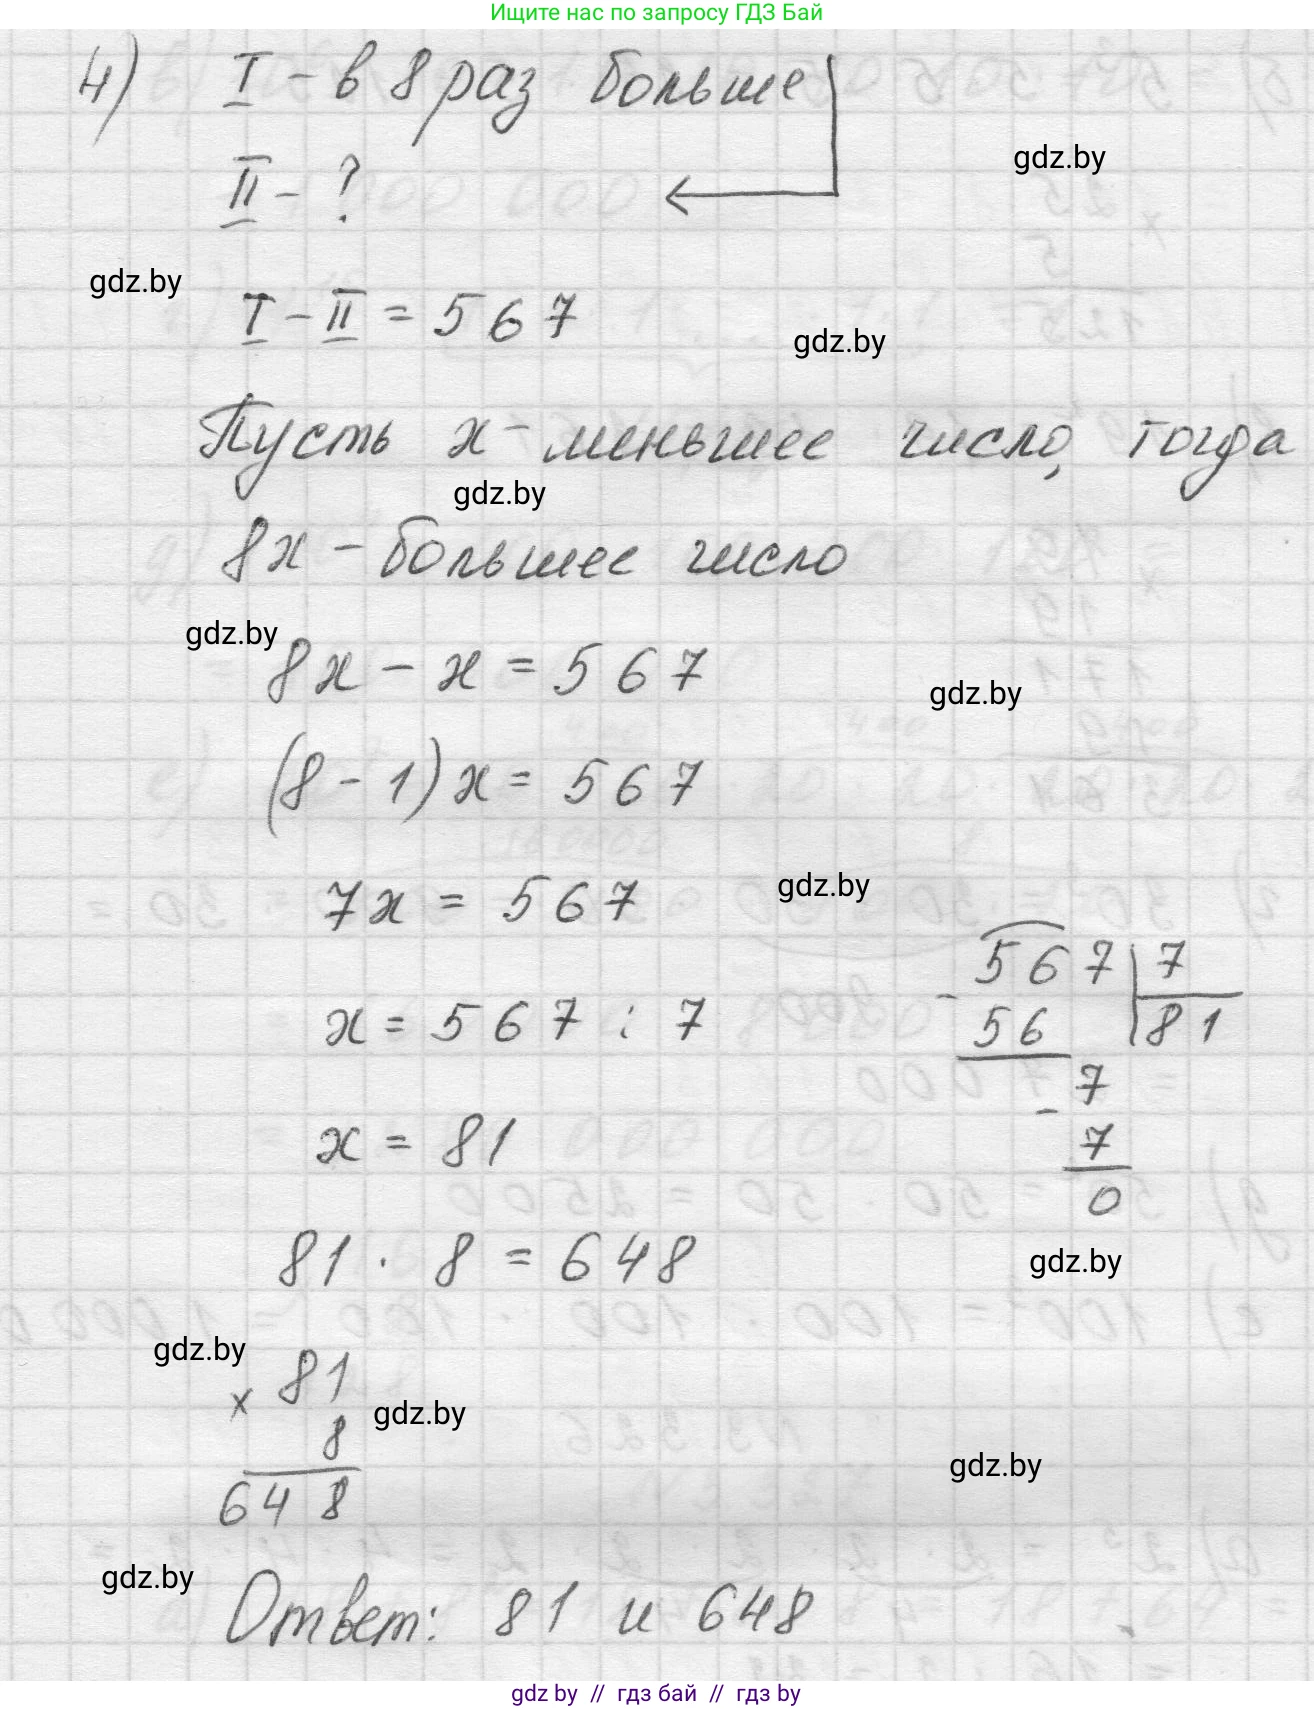 Ищите нас по запросу ГДЗ Бай
4) I - в 8 раз больше
gdz.by
II - ?
gdz.by
I - II = 567
gdz.by
Пусть x - меньшее число, тогда
gdz.by
8x - большее число
gdz.by
8x - x = 567
gdz.by
(8 - 1)x = 567
gdz.by
7x = 567
567 | 7
- 56 | 81
x = 567 : 7
- 7
7
0
x = 81
81 · 8 = 648
gdz.by
gdz.by
× 81
8
gdz.by
648
gdz.by
gdz.by
Ответ: 81 и 648
gdz by // гдз бай // гдз by